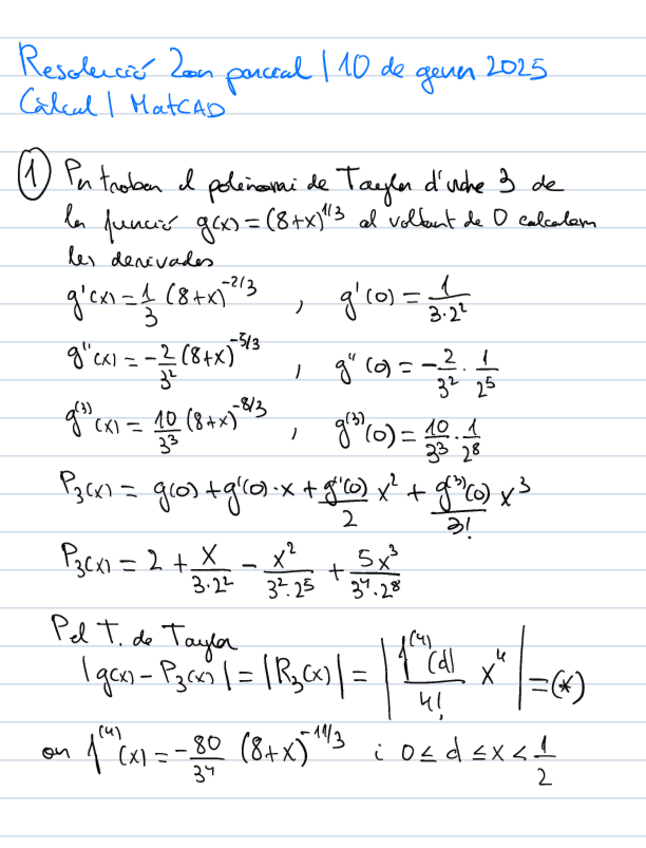 Resolució 2on parcial | 10 de gener 2025
Càlcul | MatCAD
① Per trobar el polinomi de Taylor d'ordre 3 de
la funció g(x) = (8+x)^{1/3} al voltant de 0 calculem
les derivades
g'(x) = \frac{1}{3} (8+x)^{-2/3} , g'(0) = \frac{1}{3·2^2}
g''(x) = -\frac{2}{3^2} (8+x)^{-5/3} , g''(0) = -\frac{2}{3^2} · \frac{1}{2^5}
g^{(3)}(x) = \frac{10}{3^3} (8+x)^{-8/3} , g^{(3)}(0) = \frac{10}{3^3} · \frac{1}{2^8}
P_3(x) = g(0) + g'(0)·x + \frac{g''(0)}{2} x^2 + \frac{g^{(3)}(0)}{3!} x^3
P_3(x) = 2 + \frac{x}{3·2^2} - \frac{x^2}{3^2·2^5} + \frac{5x^3}{3^4·2^8}
Pel T. de Taylor
|g(x) - P_3(x)| = |R_3(x)| = |\frac{f^{(4)}(d)}{4!} x^4| = (*)
on f^{(4)}(x) = -\frac{80}{3^4} (8+x)^{-11/3} i 0 ≤ d ≤ x < \frac{1}{2}